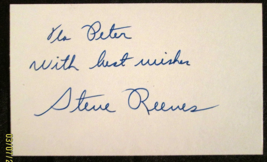 To Peter
With best wishes
Steve Reeves
03/07/2